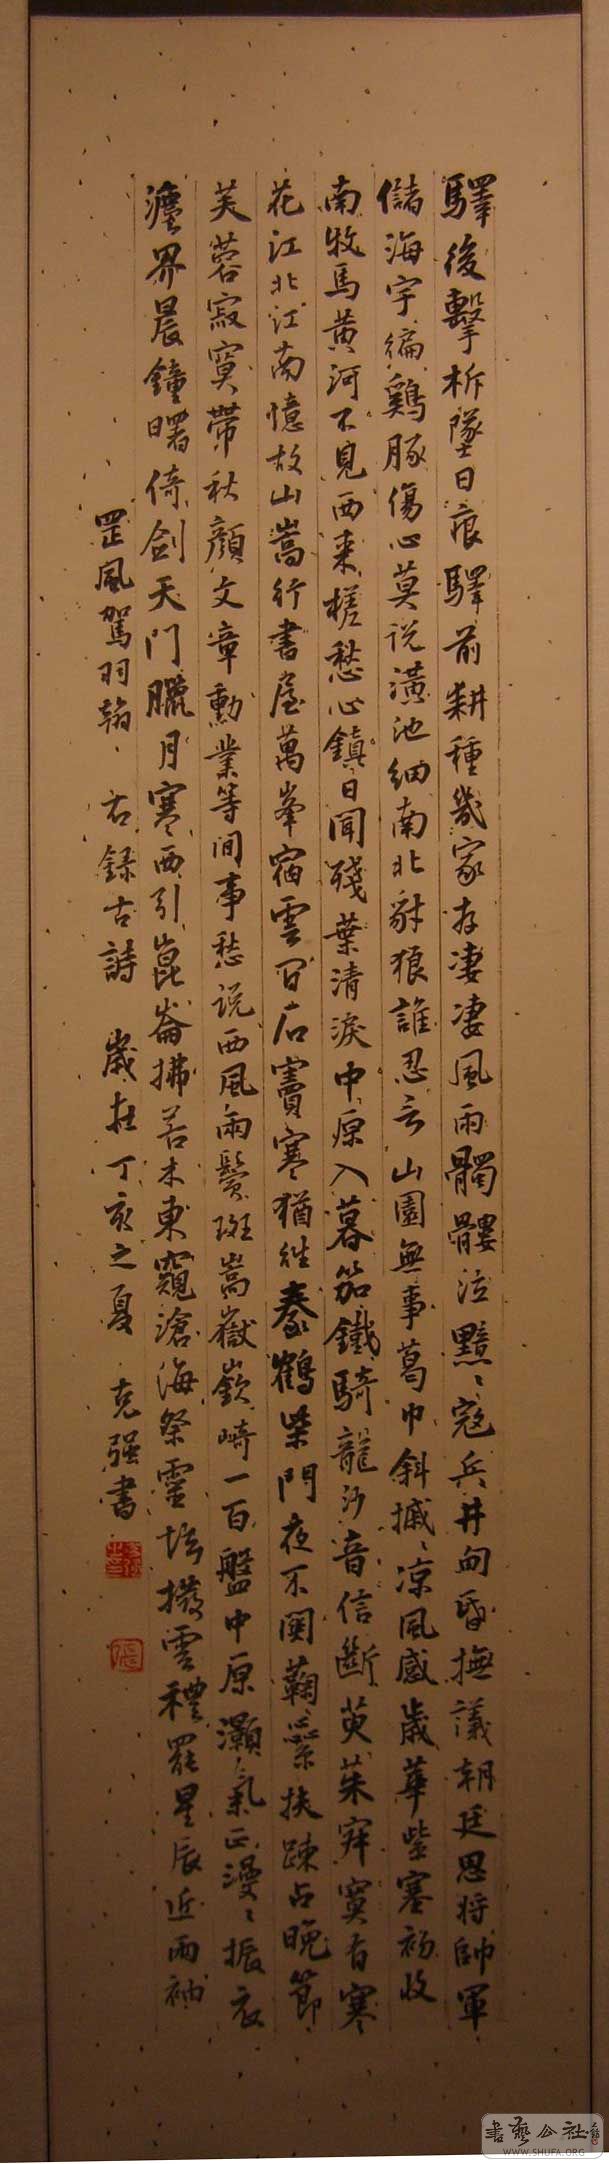 驛後擊柝墜日痕驛前耕種幾家存淒淒風雨髑髏泣黯、寇兵井甸昏撫議朝廷恩將帥軍
儲海宇徧雞豚傷心莫说潢池細南北豺狼誰忍言山園無事葛巾斜摵、凉風感歲華紫塞初收
南牧馬黄河不見西来槎愁心鎮日聞殘葉清淚中原入暮笳鐵騎龍沙音信斷萸茱寂寞有寒
花江北江南憶故山嵩行書屋萬峯宿雲留石竇寒猶往泰鶴柴門夜不関鞠蘂扶踈占晚節
芙蓉寂寞帶秋顔文章勳業等间事愁说西風兩鬢斑嵩嶽嶔崎一百盤中原灝氣正漫、振衣
塵界晨鐘曙倚劍天門臘月寒西引崑崙拂若木東窺滄海祭靈壇撥雲禮罷星辰近兩袖
罡風駕羽翰、右録古詩 歲在丁亥之夏 克强書
張
書藝公社
WWW.SHUFA.ORG